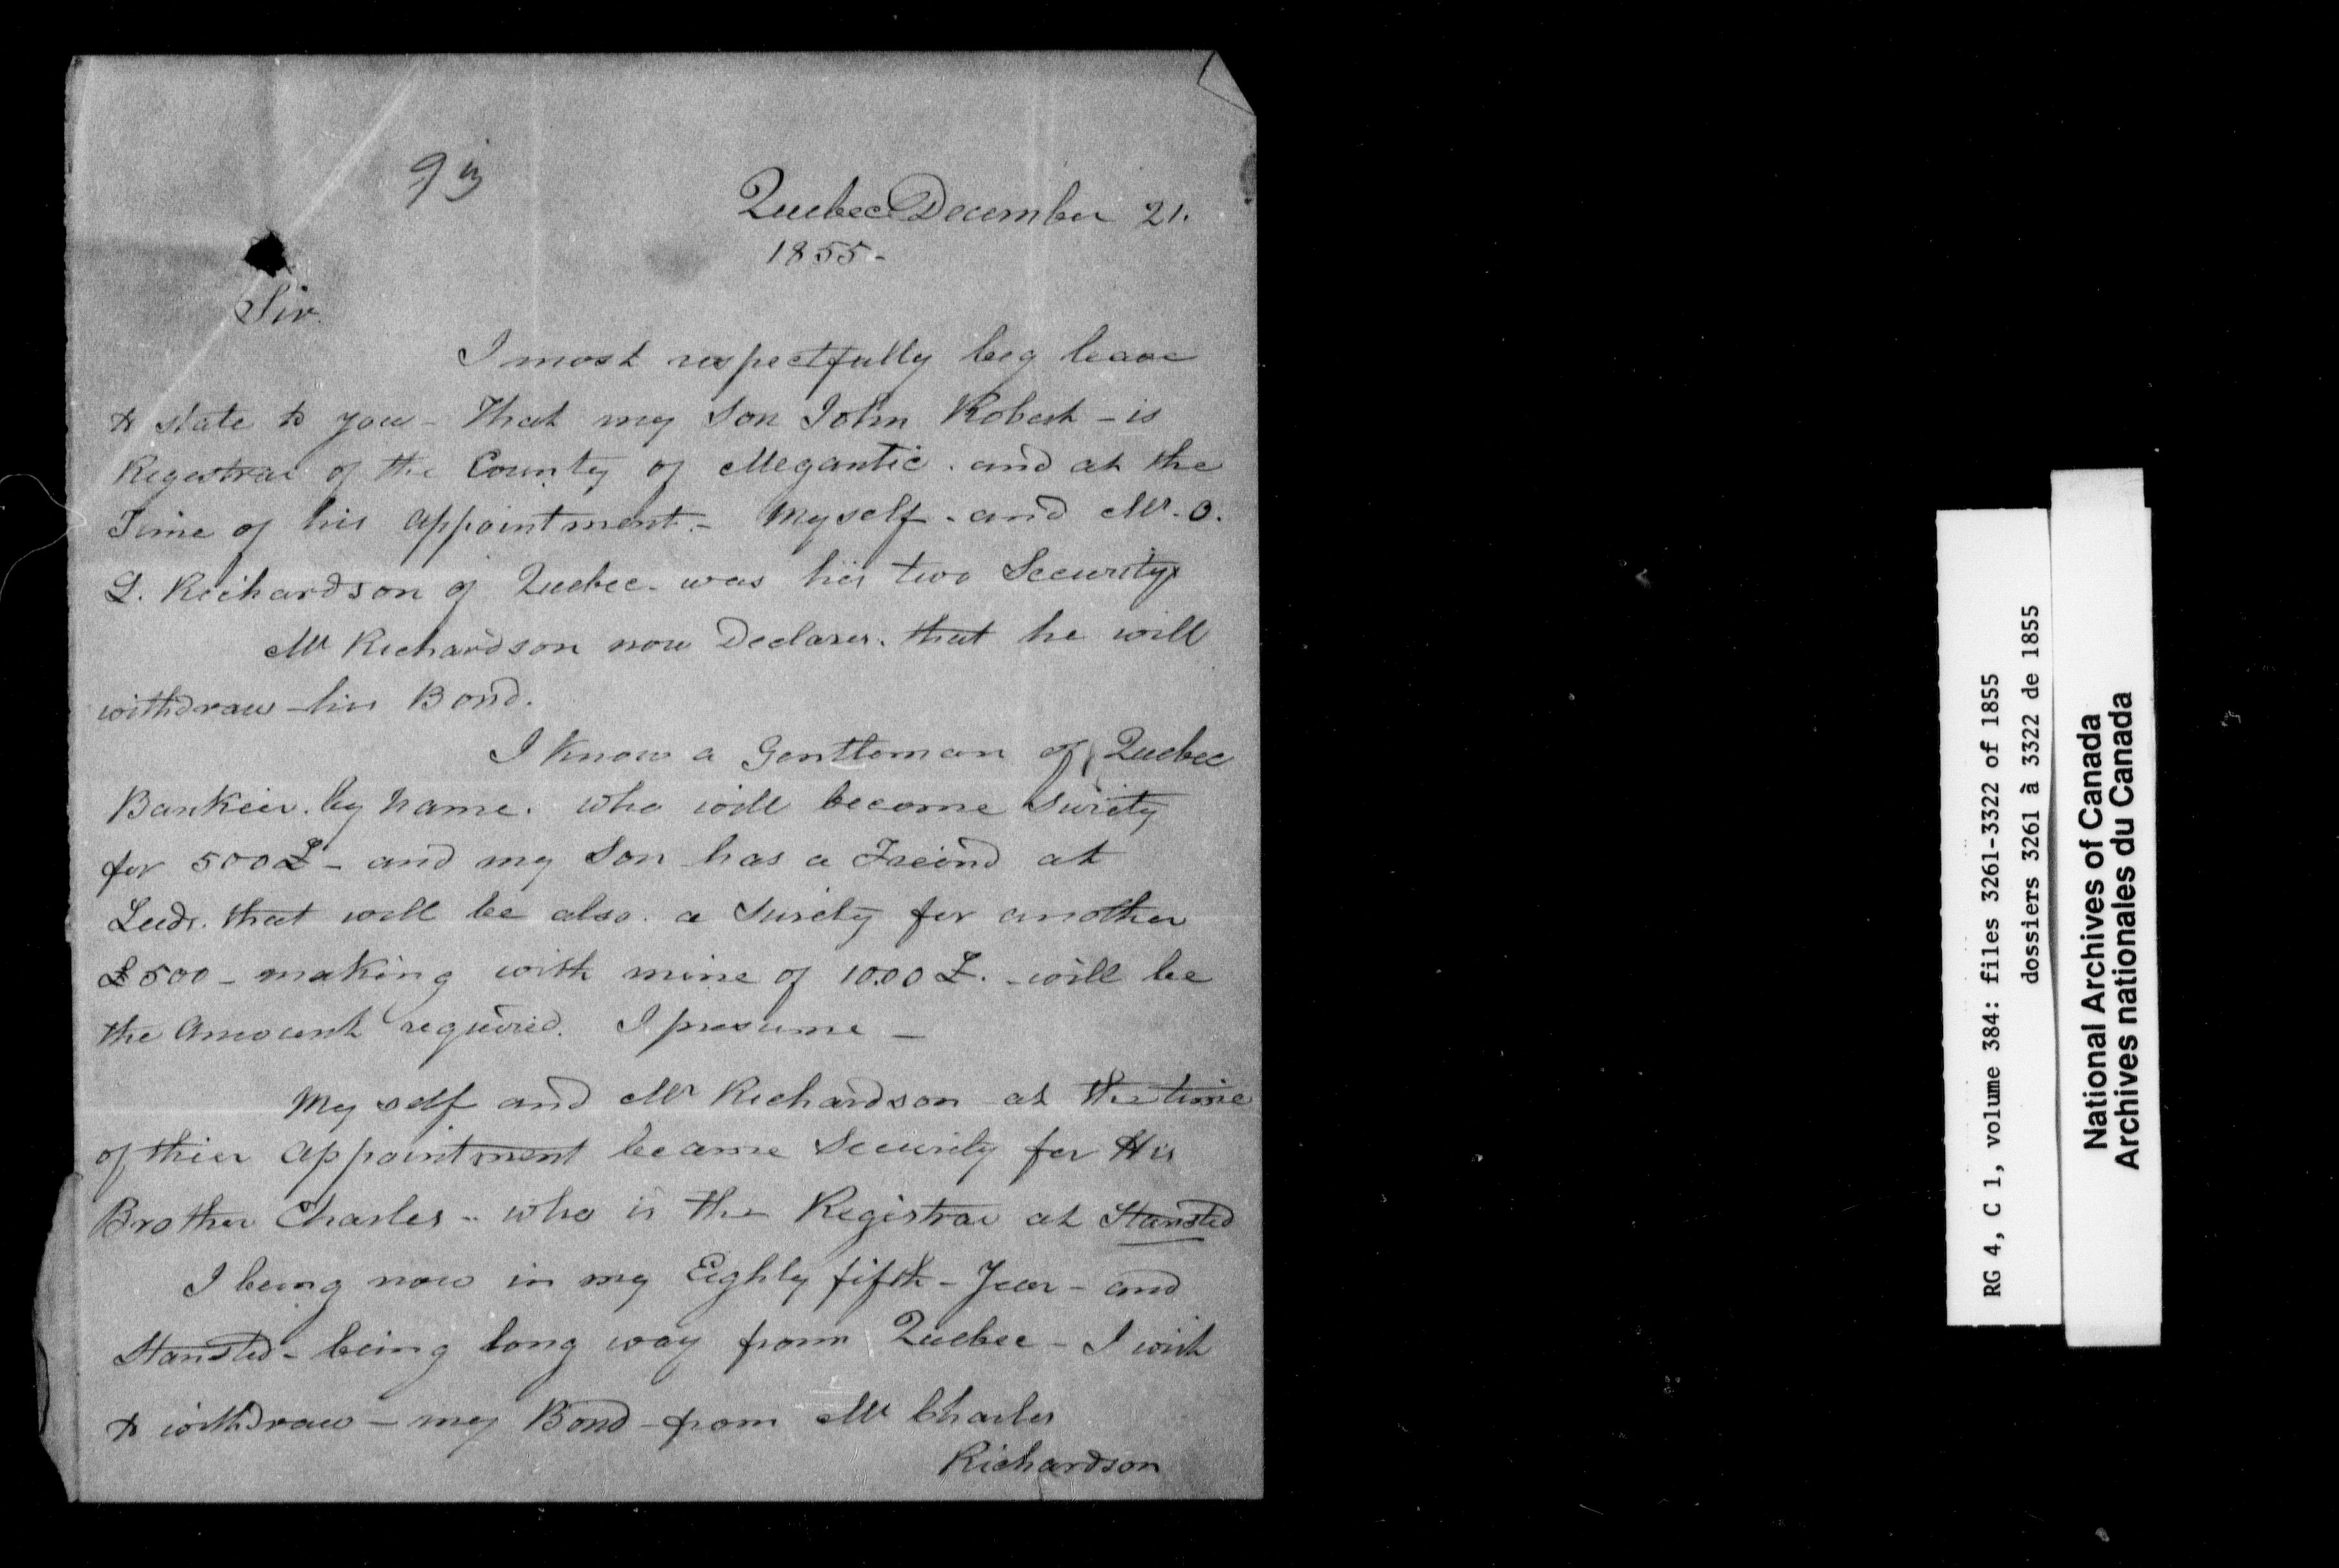 Quebec December 21.
1855-
Sir.
I most respectfully beg leave
to state to you - That my Son John Robert - is
Registrar of the County of Megantic. and at the
Time of his appointment - Myself - and Mr. O.
L. Richardson of Quebec - was his two Securitys
Mr Richardson now Declares. that he will
withdraw his Bond.
I know a Gentleman of Quebec
by name. who will become Surity
for 500£ - and my Son has a Freind at
Leeds. that will be also. a Surity for another
£500 - making with mine of 1000£. - will be
the Amount required. I presume -
My self and Mr Richardson at the time
of thier appointment became Security for His
Brother Charles - who is the Registrar at Stansted
I being now in my Eighty fifth - Year - and
Stansted - being long way from Quebec - I wish
to withdraw - my Bond - from Mr Charles
Richardson
RG 4, C 1, volume 384: files 3261-3322 of 1855
dossiers 3261 à 3322 de 1855
National Archives of Canada
Archives nationales du Canada